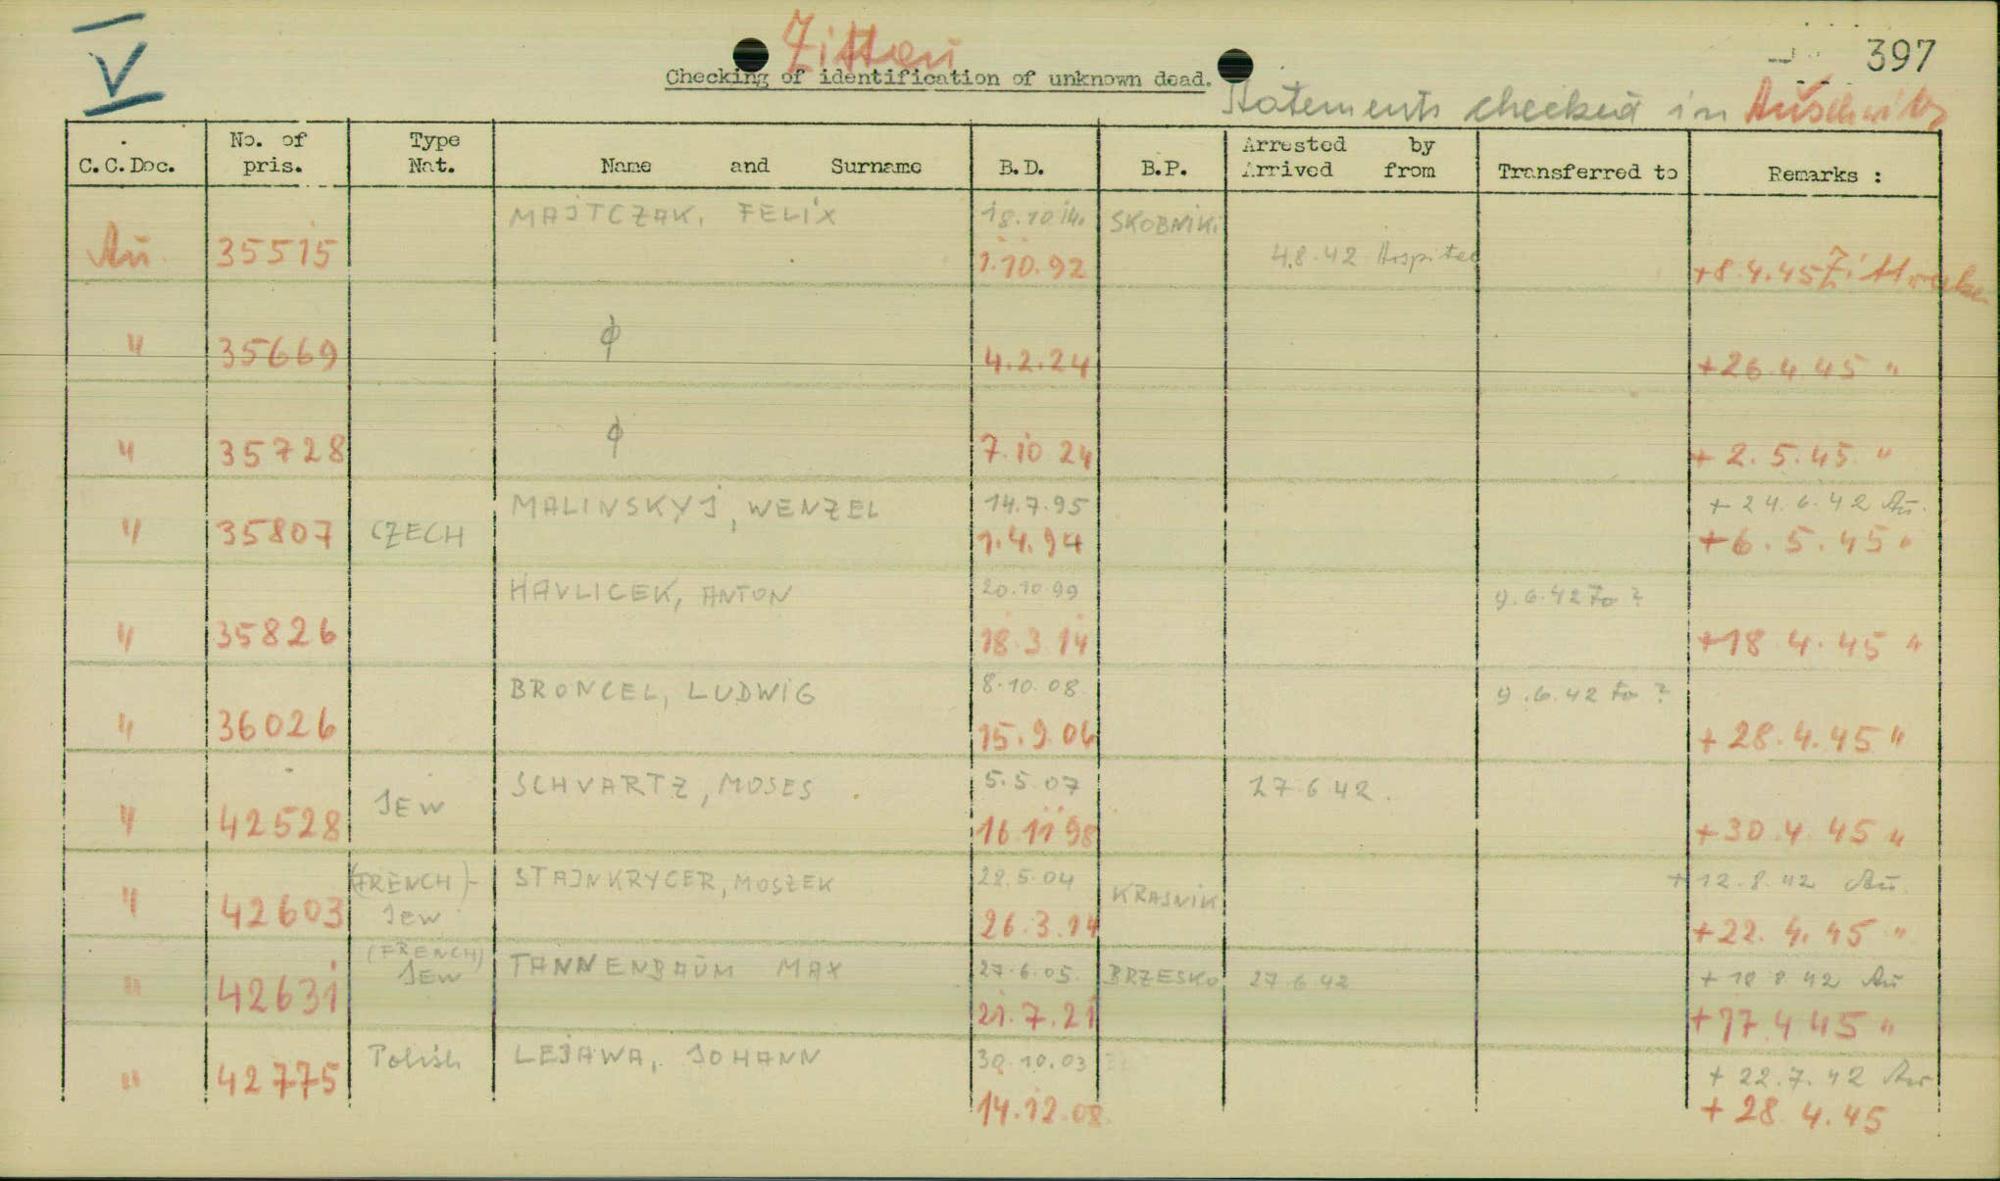 V
Zittau
397
Checking of identification of unknown dead.
Statements checked in Auschwitz
C.C.Doc. No. of pris. Type Nat. Name and Surname B.D. B.P. Arrested by Arrived from Transferred to Remarks :
MAJTCZAK, FELIX 18.10.14. SKOBNIKI
Au. 35515 1.10.92 4.8.42 Hospital +8.4.45 Zittau
" 35669 ϕ 4.2.24 +26.4.45 "
" 35728 ϕ 7.10 24 + 2.5.45 "
MALINSKYJ, WENZEL 14.7.95 + 24.6.42 Au.
" 35807 CZECH 1.4.94 +6.5.45 "
HAVLICEK, ANTON 20.10 99 9.6.42 To ?
" 35826 18.3 14 +18 4.45 "
BRONCEL, LUDWIG 8.10.08 9.6.42 To ?
" 36026 15.9.06 + 28.4.45 "
JEW SCHVARTZ, MOSES 5.5 07 27 6 42.
" 42528 16 11 98 +30.4.45 "
(FRENCH)- STAJNKRYCER, MOSZEK 28.5.04 KRASNIK + 12.8.42 Au.
" 42603 Jew 26.3.14 +22.4.45 "
(FRENCH) JEW TANNENBAUM MAX 27.6.05. BRZESKO 27 6 42 + 18 8 42 Au
" 42631 21.7.21 +17.4 45 "
Polish LEJAWA, JOHANN 30.10.03 + 22.7.42 Au
" 42775 14.12.08 + 28.4.45